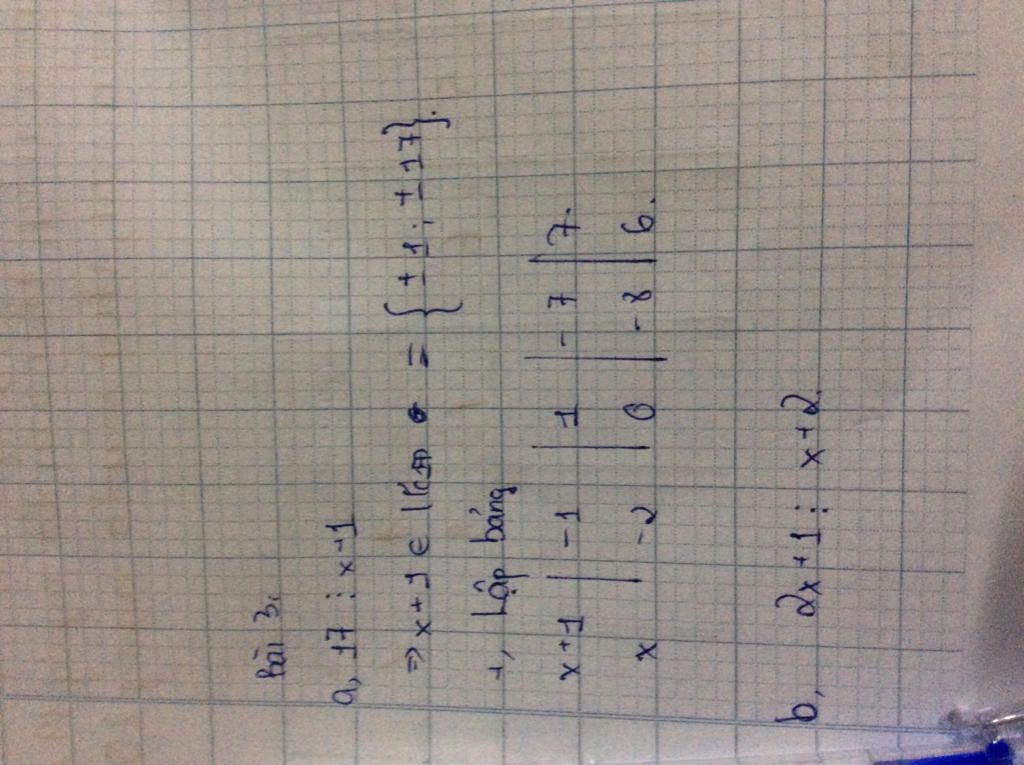 Bài 3.
a, 17 ⋮ x+1
⇒ x+1 ∈ = {±1; ±17}.
+, Lập bảng
x+1 | -1 | 1 | -7 | 7.
x | -2 | 0 | -8 | 6.
b, 2x+1 ⋮ x+2.